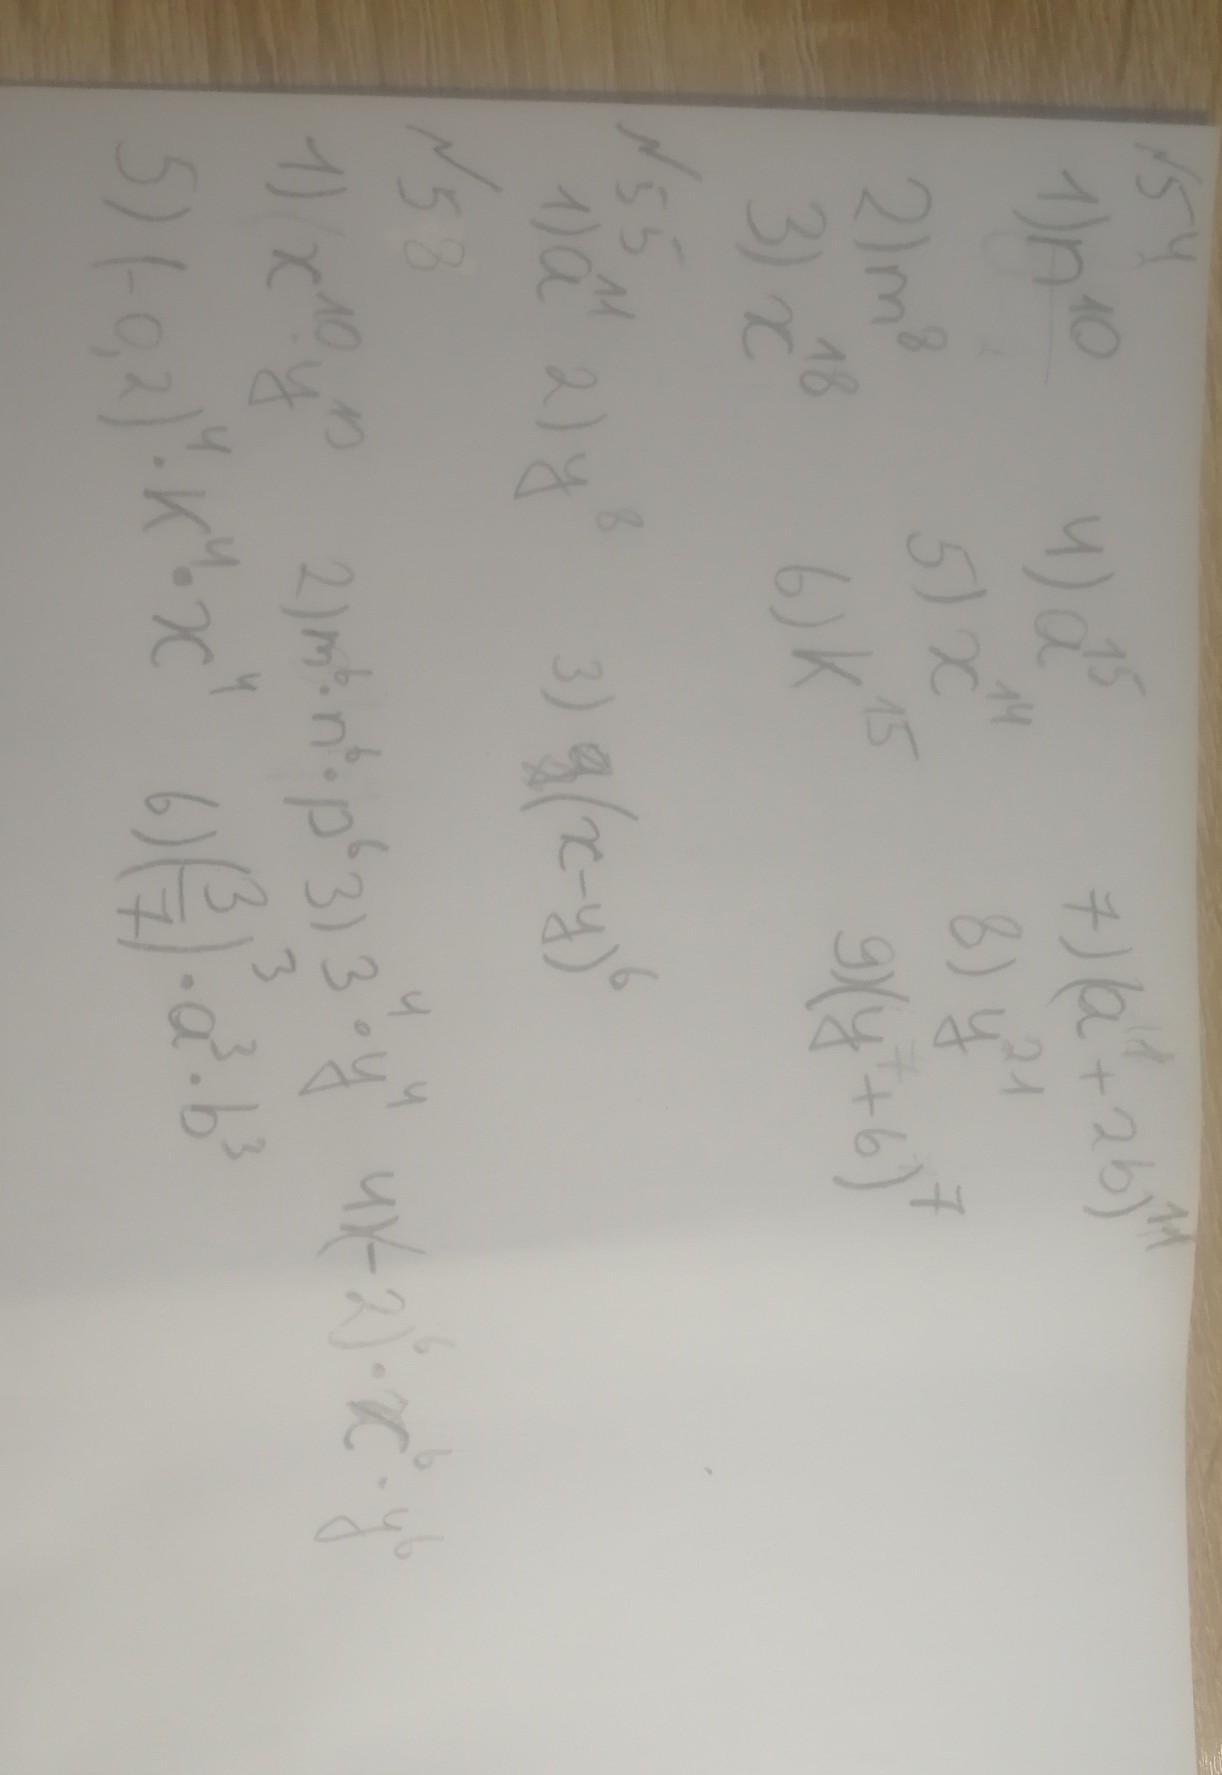 №54
1) n¹⁰ 4) a¹⁵ 7) (a¹¹ + 2b)¹¹
2) m⁸ 5) x¹⁴ 8) y²¹
3) x¹⁸ 6) k¹⁵ 9) (y⁷ + b)⁷
№55
1) a¹¹ 2) y⁸ 3) (x-y)⁶
№58
1) x¹⁰ · y¹⁰ 2) m⁶ · n⁶ · p⁶ 3) 3⁴ · y⁴ 4) (-2)⁶ · x⁶ · y⁶
5) (-0,2)⁴ · k⁴ · x⁴ 6) (3/7)³ · a³ · b³